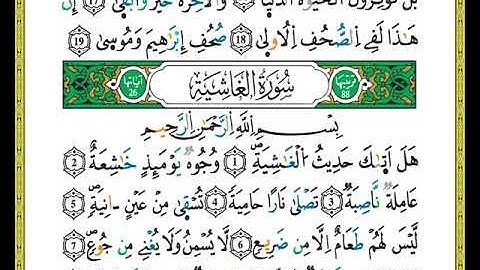 بَلْ تُؤْثِرُونَ الْحَيٰوةَ الدُّنْيَا ﴿١٦﴾ وَالْاٰخِرَةُ خَيْرٌ وَّاَبْقٰى ﴿١٧﴾ اِنَّ
هٰذَا لَفِي الصُّحُفِ الْاُولٰى ﴿١٨﴾ صُحُفِ اِبْرٰهِيْمَ وَمُوسٰى ﴿١٩﴾
ترتيبها 88 سُورَةُ الْغَاشِيَةِ آياتها 26
بِسْمِ اللّٰهِ الرَّحْمٰنِ الرَّحِيمِ
هَلْ اَتٰىكَ حَدِيثُ الْغَاشِيَةِ ﴿1﴾ وُجُوهٌ يَوْمَئِذٍ خَاشِعَةٌ ﴿2﴾
عَامِلَةٌ نَّاصِبَةٌ ﴿3﴾ تَصْلٰى نَارًا حَامِيَةً ﴿4﴾ تُسْقٰى مِنْ عَيْنٍ اٰنِيَةٍ ﴿5﴾
لَيْسَ لَهُمْ طَعَامٌ اِلَّا مِن ضَرِيعٍ ﴿6﴾ لَّا يُسْمِنُ وَلَا يُغْنِي مِن جُوعٍ ﴿7﴾